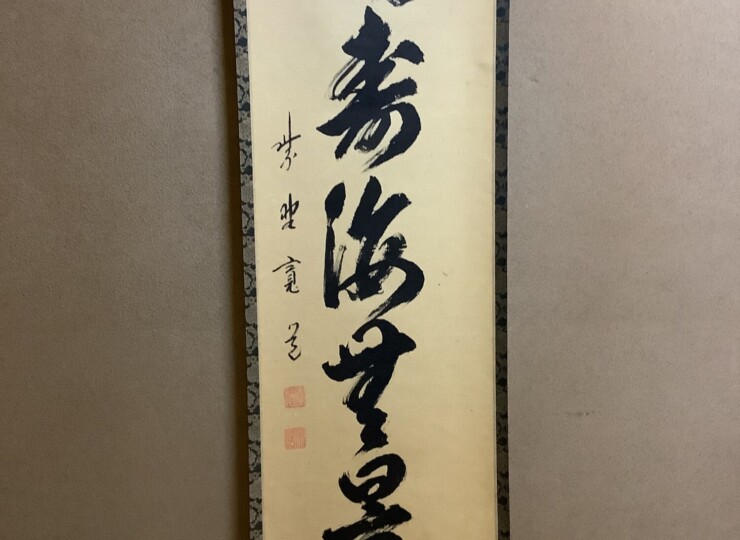 寿海無量
紫野寛道